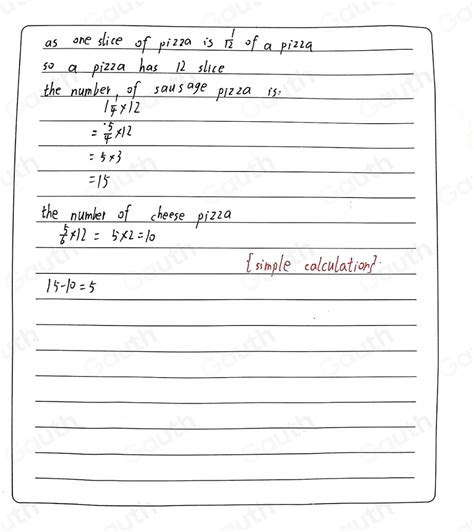 as one slice of pizza is 1/12 of a pizza
so a pizza has 12 slice
the number of sausage pizza is:
1 1/4 × 12
= 5/4 × 12
= 5 × 3
= 15
the number of cheese pizza
5/6 × 12 = 5 × 2 = 10
{simple calculation}.
15 - 10 = 5
Gauth